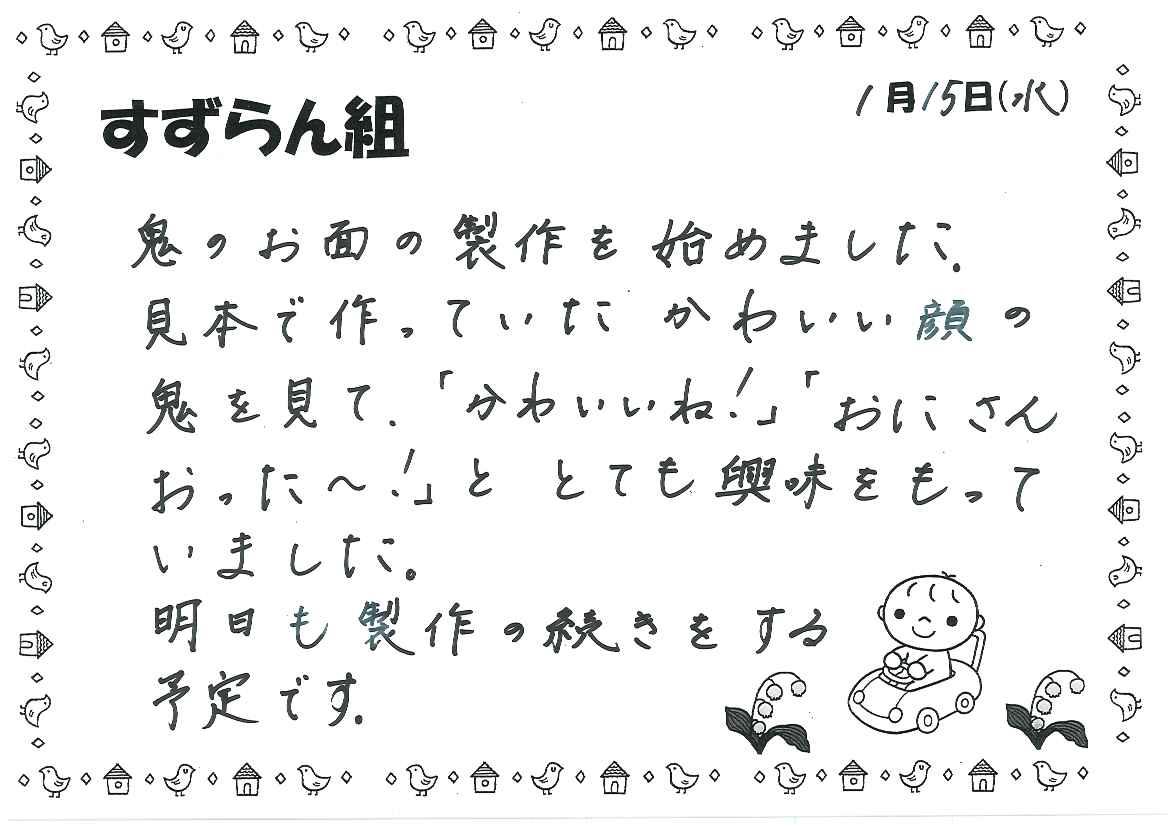 すずらん組
1月15日(水)
鬼のお面の製作を始めました.
見本で作っていた かわいい顔の
鬼を見て.「かわいいね!」「おにさん
おった〜!」と とても興味をもって
いました。
明日も製作の続きをする
予定です.